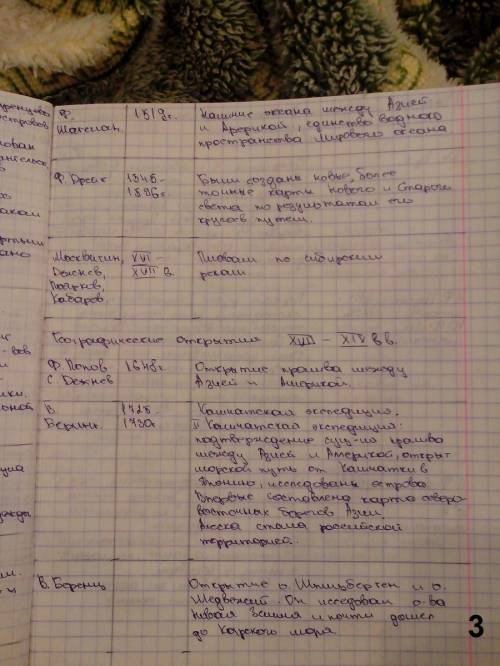 ренцово
островов
Ф. Магеллан. 1519г. Наличие океана между Азией
и Америкой, единство водного
пространства Мирового океана
Ф. Дрейк 1546-
1596г. Были созданы новые, более
точные карты Нового и Старого
света по результатам его
кругосв. путеш.
Москвитин,
Дежнев,
Поярков,
Хабаров. XVI -
XVII в. Плавали по сибирским
рекам
Географические открытия XVII - XIX вв.
Ф. Попов
С. Дежнев 1648г. Открытие пролива между
Азией и Америкой.
В.
Беринг. Камчатская экспедиция.
II Камчатская экспедиция:
подтверждение сущ-ия пролива
между Азией и Америкой, открыт
морской путь от Камчатки в
Японию, исследованы острова.
Впервые составлена карта северо
восточных берегов Азии.
Аляска стала российской
территорией.
В. Баренц Открытие о. Шпицберген и о.
Медвежий. Он исследовал о-ва
Новая Земля и почти дошел
до Карского моря.
3